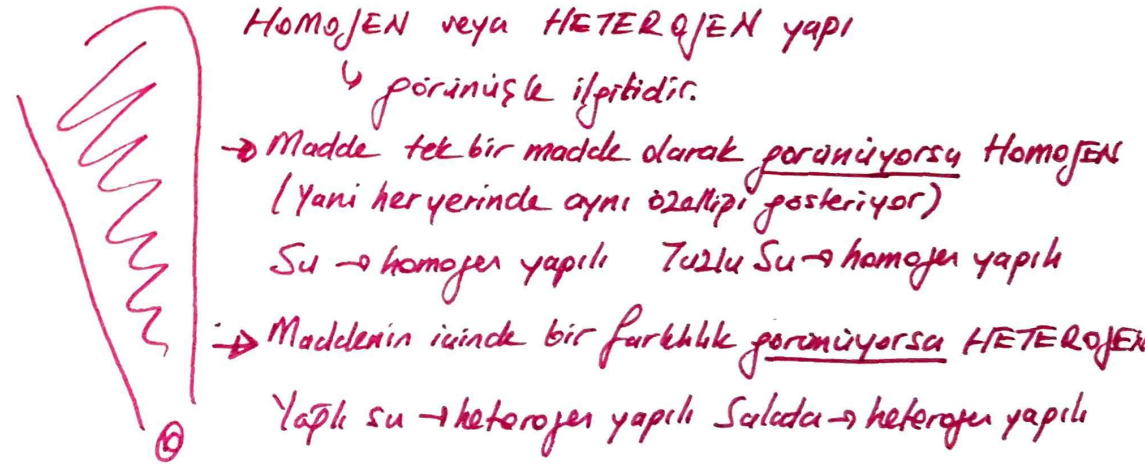 HOMOJEN veya HETEROJEN yapı
↳ görünüşle ilgilidir.
→ Madde tek bir madde olarak görünüyorsa HOMOJEN
(Yani her yerinde aynı özelliği gösteriyor)
Su → homojen yapılı Tuzlu Su → homojen yapılı
→ Maddenin içinde bir farklılık görünüyorsa HETEROJEN
Yağlı su → heterojen yapılı Salata → heterojen yapılı